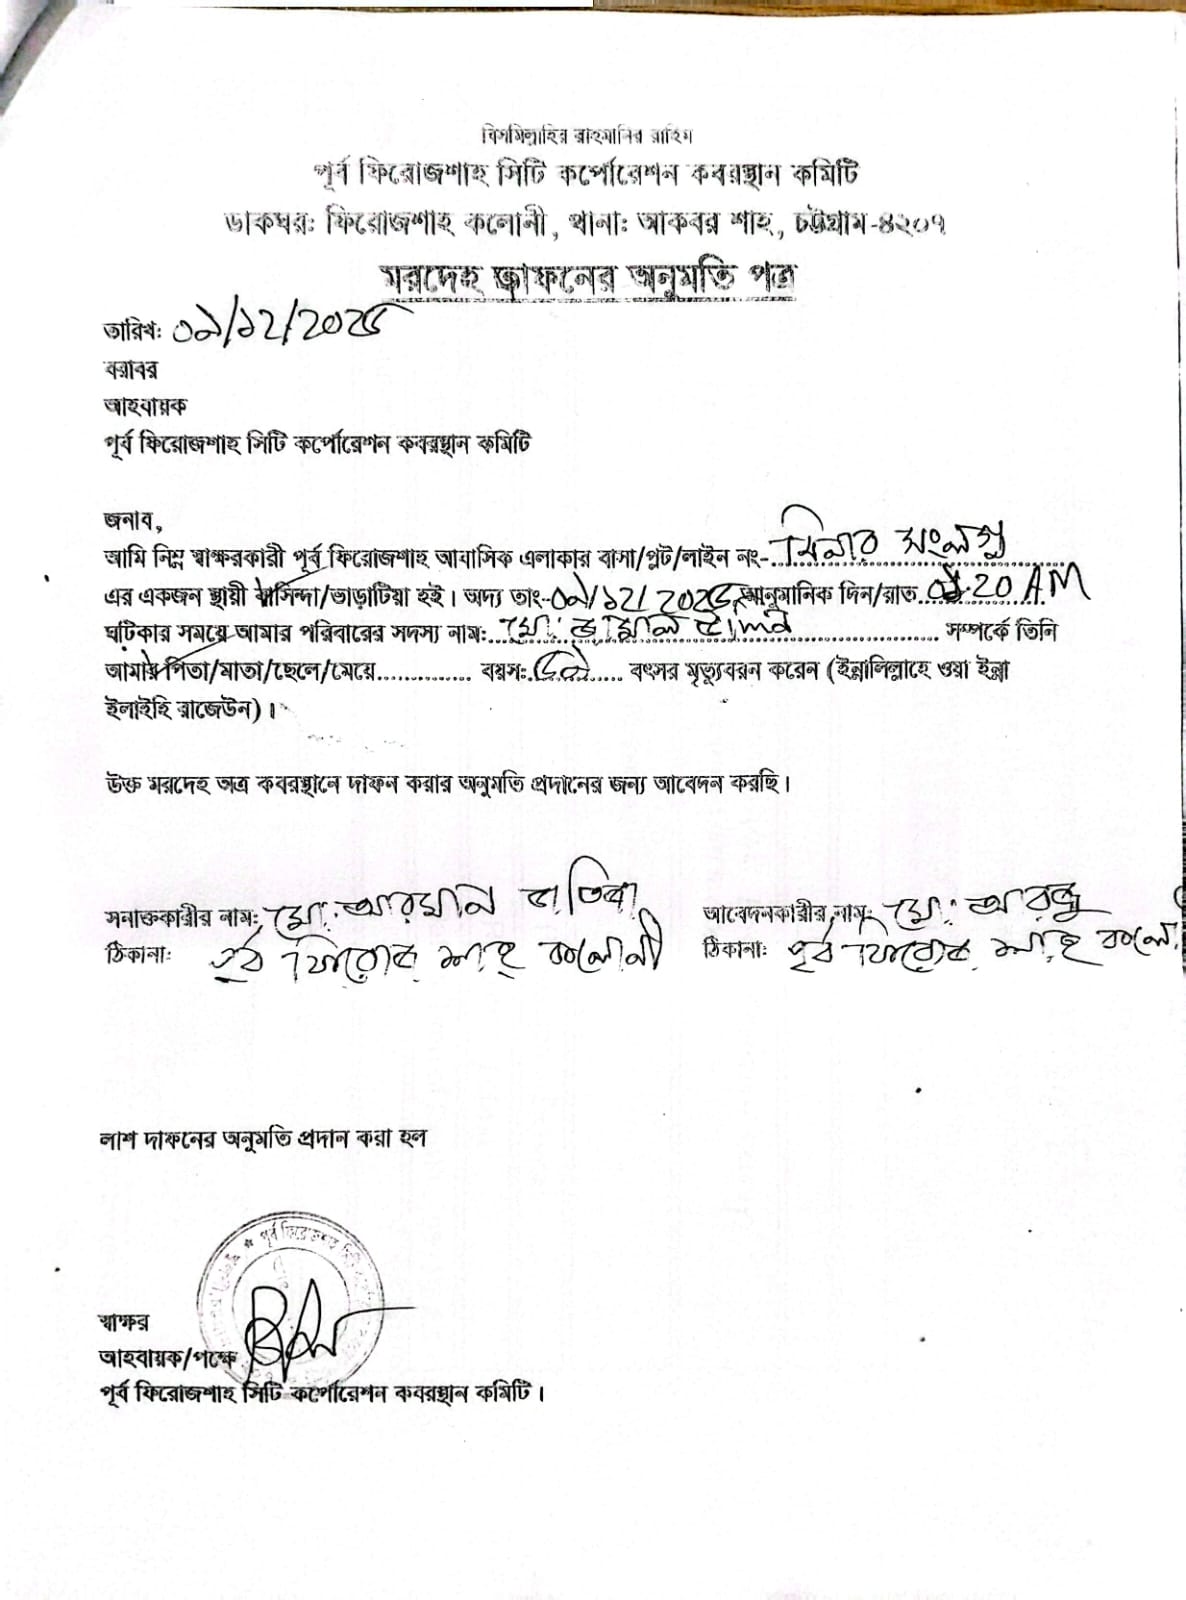 বিসমিল্লাহির রাহমানির রাহিম
পূর্ব ফিরোজশাহ সিটি কর্পোরেশন কবরস্থান কমিটি
ডাকঘর: ফিরোজশাহ কলোনী, থানা: আকবর শাহ, চট্টগ্রাম-৪২০৭
মরদেহ দাফনের অনুমতি পত্র
তারিখ: ০৯/১২/২০২৫
বরাবর
আহবায়ক
পূর্ব ফিরোজশাহ সিটি কর্পোরেশন কবরস্থান কমিটি
জনাব,
আমি নিম্ন স্বাক্ষরকারী পূর্ব ফিরোজশাহ আবাসিক এলাকার বাসা/প্লট/লাইন নং- মিনার সংলগ্ন
এর একজন স্থায়ী বাসিন্দা/ভাড়াটিয়া হই। অদ্য তাং-০৯/১২/২০২৫ আনুমানিক দিন/রাত 20 AM
ঘটিকার সময়ে আমার পরিবারের সদস্য নাম: মো: সম্পর্কে তিনি
আমার পিতা/মাতা/ছেলে/মেয়ে.............. বয়স: বৎসর মৃত্যুবরন করেন (ইন্নালিল্লাহে ওয়া ইন্না
ইলাইহি রাজেউন)।
উক্ত মরদেহ অত্র কবরস্থানে দাফন করার অনুমতি প্রদানের জন্য আবেদন করছি।
সনাক্তকারীর নাম: মো: আরমান
আবেদনকারীর নাম: মো:
ঠিকানা: পূর্ব ফিরোজ শাহ্ কলোনী
ঠিকানা: পূর্ব ফিরোজ শাহ্ কলো
লাশ দাফনের অনুমতি প্রদান করা হল
পূর্ব ফিরোজশাহ সিটি
স্বাক্ষর
আহবায়ক/পক্ষে
পূর্ব ফিরোজশাহ সিটি কর্পোরেশন কবরস্থান কমিটি।